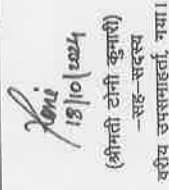 18/10/2024
(श्रीमती टोनी कुमारी)
–सह–सदस्य
वरीय उपसमाहर्ता, गया।